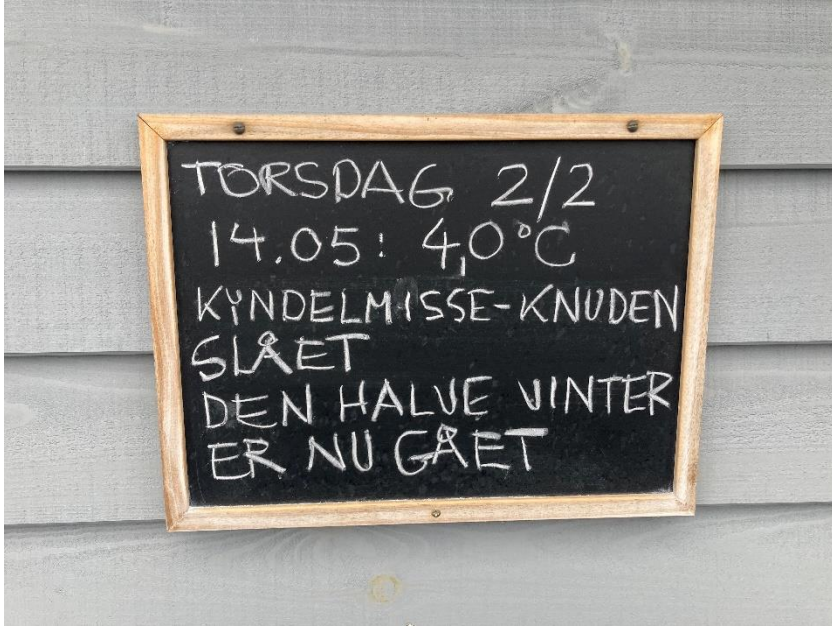 TORSDAG 2/2
14.05: 4,0°C
KYNDELMISSE-KNUDEN
SLÅET
DEN HALVE VINTER
ER NU GÅET